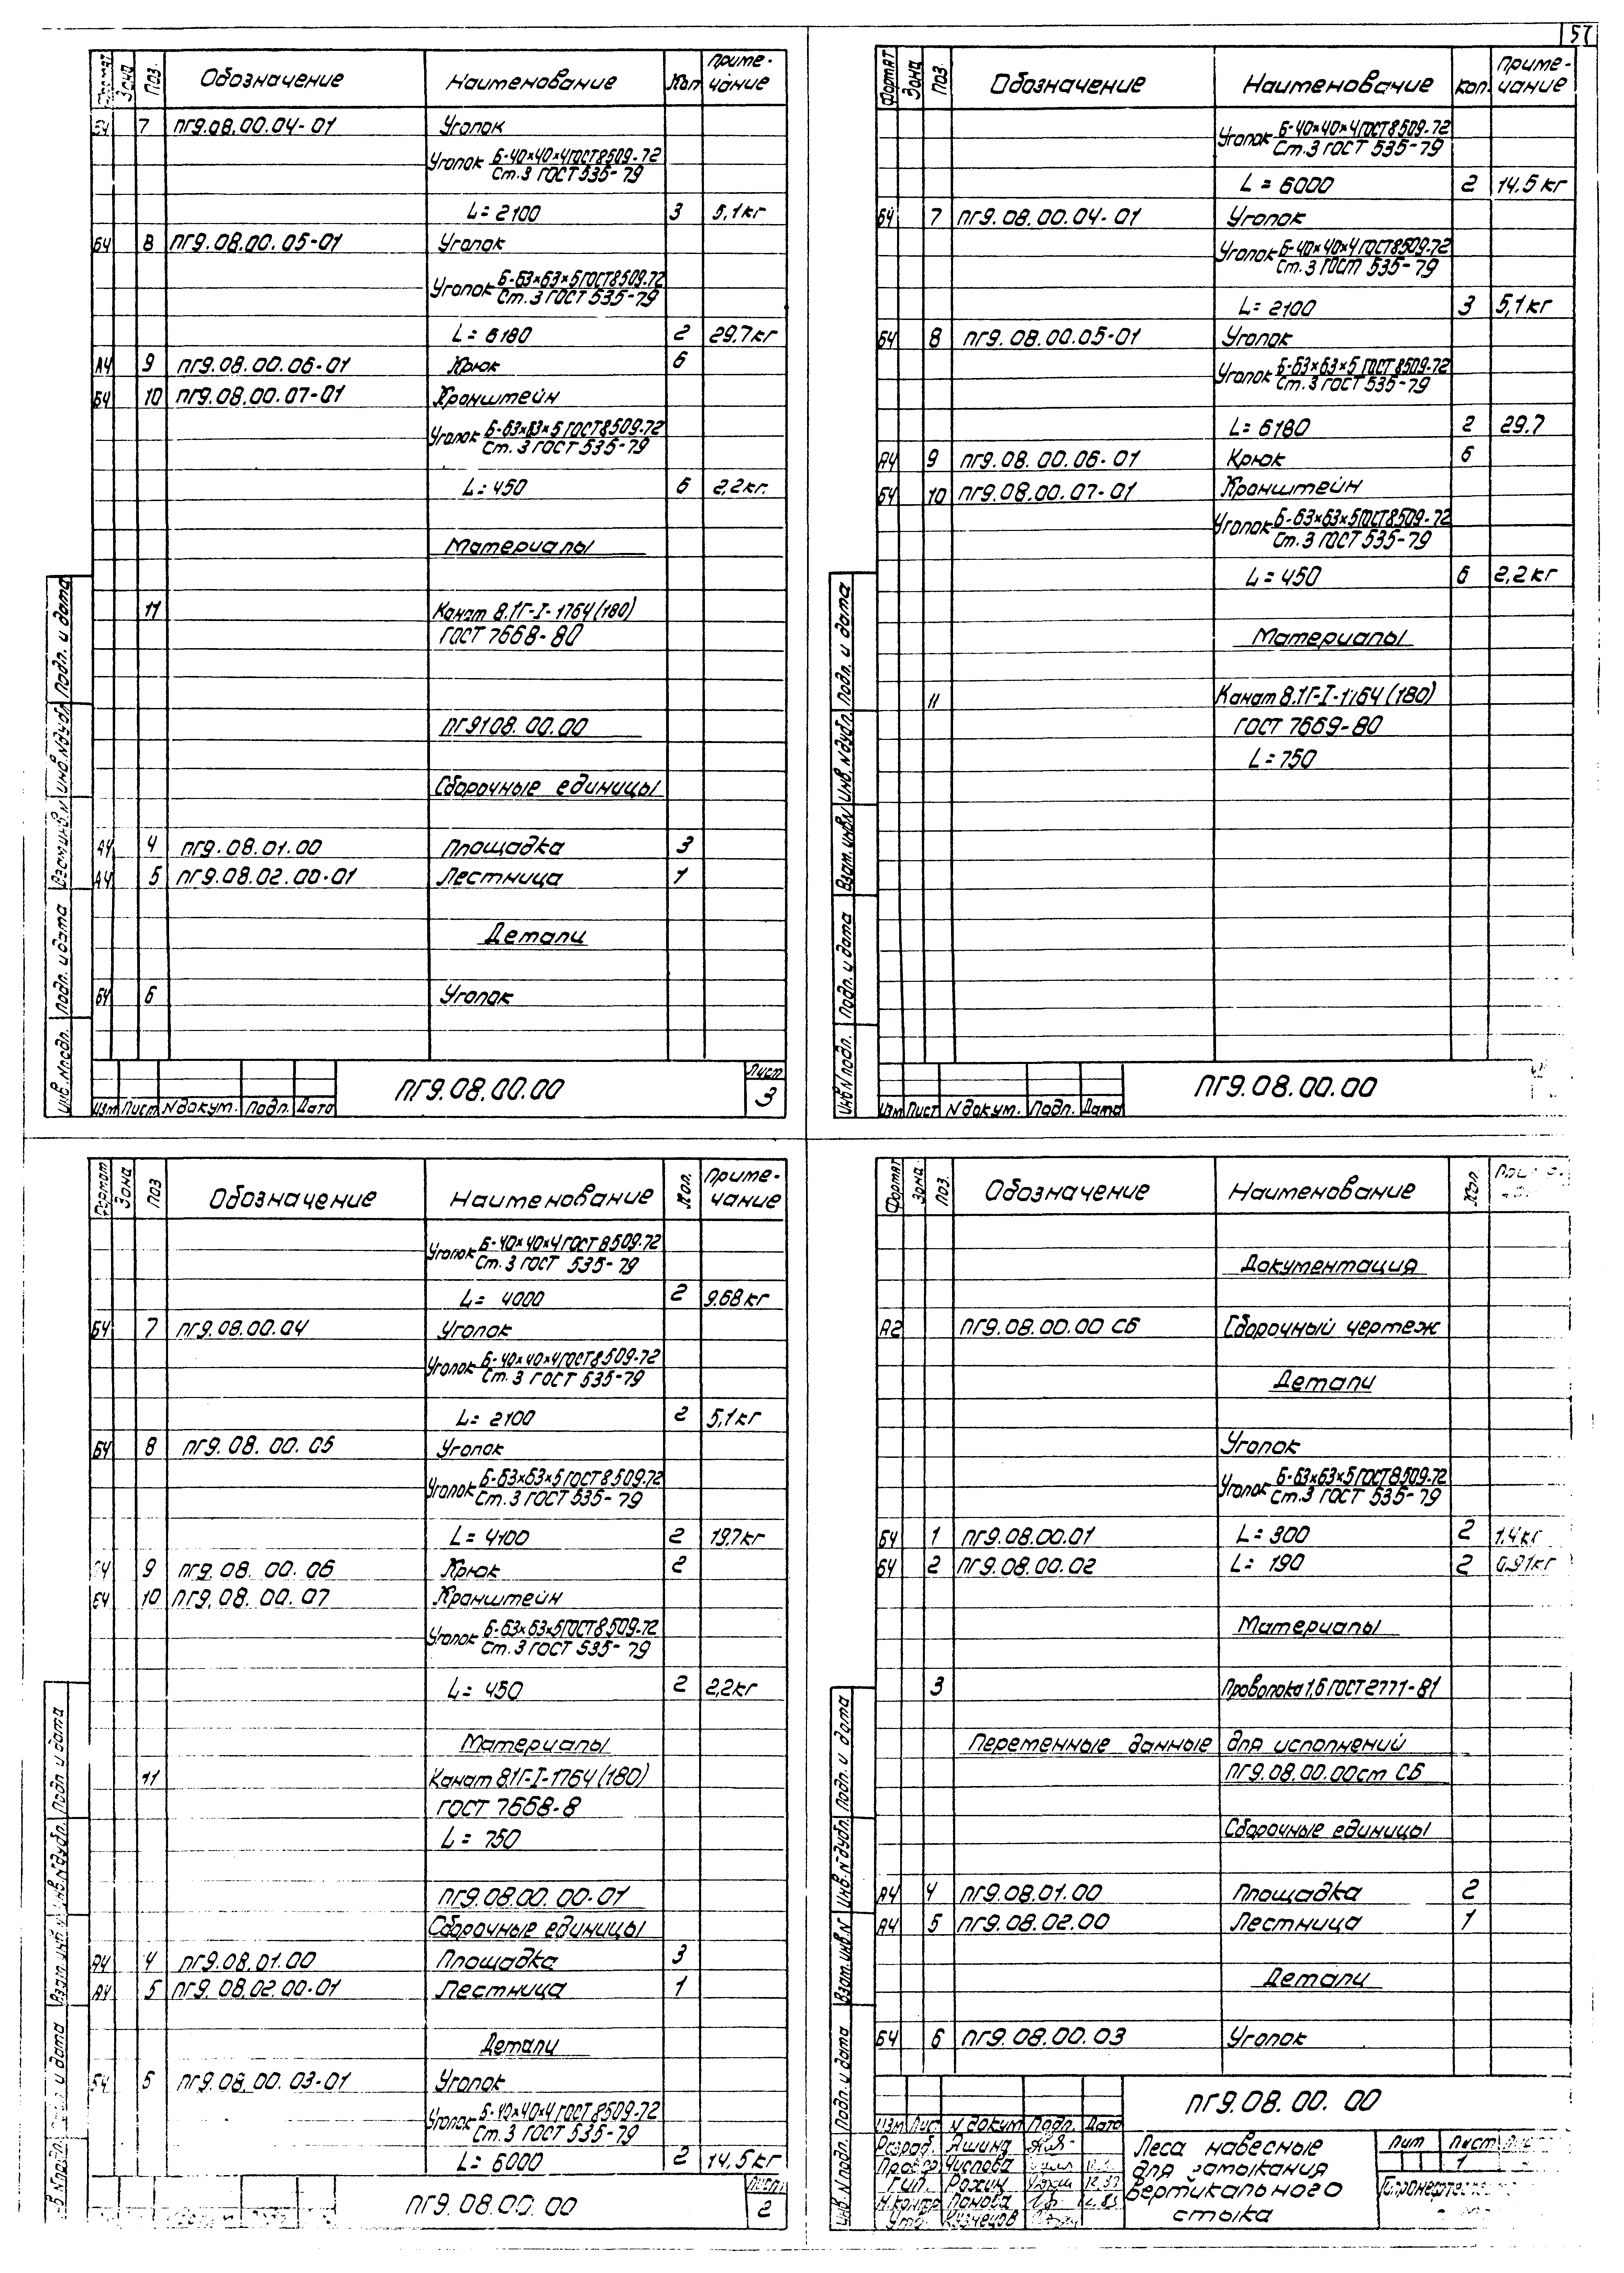 57
Формат Зона Поз. Обозначение Наименование Кол Приме-чание
БЧ 7 ПГ9.08.00.04-01 Уголок
Уголок Б-40×40×4 ГОСТ 8509-72
Ст.3 ГОСТ 535-79
L=2100 3 5,1кг
БЧ 8 ПГ9.08.00.05-01 Уголок
Уголок Б-63×63×5 ГОСТ 8509-72
Ст.3 ГОСТ 535-79
L=6180 2 29.7кг
А4 9 ПГ9.08.00.06-01 Крюк 6
БЧ 10 ПГ9.08.00.07-01 Кронштейн
Уголок Б-63×63×5 ГОСТ 8509-72
Ст.3 ГОСТ 535-79
L=450 6 2,2кг.
Материалы
11 Канат 8.1Г-I-1764(180)
ГОСТ 7668-80
ПГ9108.00.00
Сборочные единицы
А4 4 ПГ9.08.01.00 Площадка 3
А4 5 ПГ9.08.02.00-01 Лестница 1
Детали
БЧ 6 Уголок
Инв.Nподл. Подп. и дата Взам.инв.N Инв.Nдубл. Подп. и дата
Изм Лист Nдокум. Подп. Дата
ПГ9.08.00.00
Лист 3
Формат Зона Поз. Обозначение Наименование Кол. Приме-чание
Уголок Б-40×40×4 ГОСТ 8509-72
Ст.3 ГОСТ 535-79
L=6000 2 14,5кг
БЧ 7 ПГ9.08.00.04-01 Уголок
Уголок Б-40×40×4 ГОСТ 8509-72
Ст.3 ГОСТ 535-79
L=2100 3 5,1кг
БЧ 8 ПГ9.08.00.05-01 Уголок
Уголок Б-63×63×5 ГОСТ 8509-72
Ст.3 ГОСТ 535-79
L=6180 2 29.7
А4 9 ПГ9.08.00.06-01 Крюк 6
БЧ 10 ПГ9.08.00.07-01 Кронштейн
Уголок Б-63×63×5 ГОСТ 8509-72
Ст.3 ГОСТ 535-79
L=450 6 2,2кг
Материалы
11 Канат 8.1Г-I-1764(180)
ГОСТ 7669-80
L=750
Инв N подл. Подп. и дата Взам. инв N Инв. N дубл. Подп. и дата
Изм Лист N докум. Подп. Дата
ПГ9.08.00.00
Формат Зона Поз Обозначение Наименование Кол. Приме-чание
Уголок Б-40×40×4 ГОСТ 8509-72
Ст.3 ГОСТ 535-79
L= 4000 2 9.68кг
БЧ 7 ПГ9.08.00.04 Уголок
Уголок Б-40×40×4 ГОСТ 8509-72
Ст.3 ГОСТ 535-79
L=2100 2 5,1кг
БЧ 8 ПГ9.08.00.05 Уголок
Уголок Б-63×63×5 ГОСТ 8509-72
Ст.3 ГОСТ 535-79
L=4100 2 19.7кг
9 ПГ9.08.00.06 Крюк 2
БЧ 10 ПГ9.08.00.07 Кронштейн
Уголок Б-63×63×5 ГОСТ 8509-72
Ст.3 ГОСТ 535-79
L= 450 2 2,2кг
Материалы
11 Канат 8.1Г-I-1764(180)
ГОСТ 7668-8
L= 750
ПГ9.08.00.00-01
Сборочные единицы
А4 4 ПГ9.08.01.00 Площадка 3
А4 5 ПГ9.08.02.00-01 Лестница 1
Детали
БЧ 6 ПГ9.08.00.03-01 Уголок
Уголок Б-40×40×4 ГОСТ 8509-72
Ст.3 ГОСТ 535-79
L= 6000 2 14,5кг
ПГ9.08.00.00
Лист 2
Формат Зона Поз. Обозначение Наименование Кол.
Документация
А2 ПГ9.08.00.00 СБ Сборочный чертеж
Детали
Уголок
Уголок Б-63×63×5 ГОСТ 8509-72
Ст.3 ГОСТ 535-79
БЧ 1 ПГ9.08.00.01 L= 300 2 1.4кг
БЧ 2 ПГ9.08.00.02 L= 190 2 0.91кг
Материалы
3 Проволока 1,6 ГОСТ 2771-81
Переменные данные для исполнений
ПГ9.08.00.00 ст СБ
Сборочные единицы
А4 4 ПГ9.08.01.00 Площадка 2
А4 5 ПГ9.08.02.00 Лестница 1
Детали
БЧ 6 ПГ9.08.00.03 Уголок
Инв. N подл. Подп. и дата Взам. инв.N Инв N дубл. Подп. и дата
ПГ9.08.00.00
Изм Лист N докум Подп. Дата
Разраб. Яшина
Числова
Гип. Рожин
Н.контр Панова
Утв. Кузнецов
Леса навесные
для замыкания
вертикального
стыка
Лит Лист
1